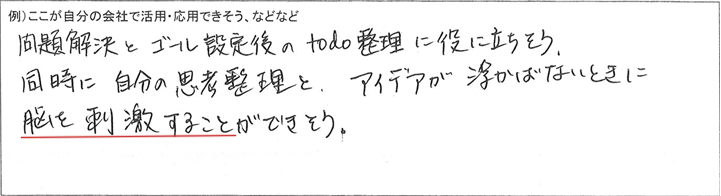 例)ここが自分の会社で活用・応用できそう、などなど
問題解決とゴール設定後のtodo整理に役に立ちそう.
同時に自分の思考整理と、アイデアが浮かばないときに
脳を刺激することができそう。